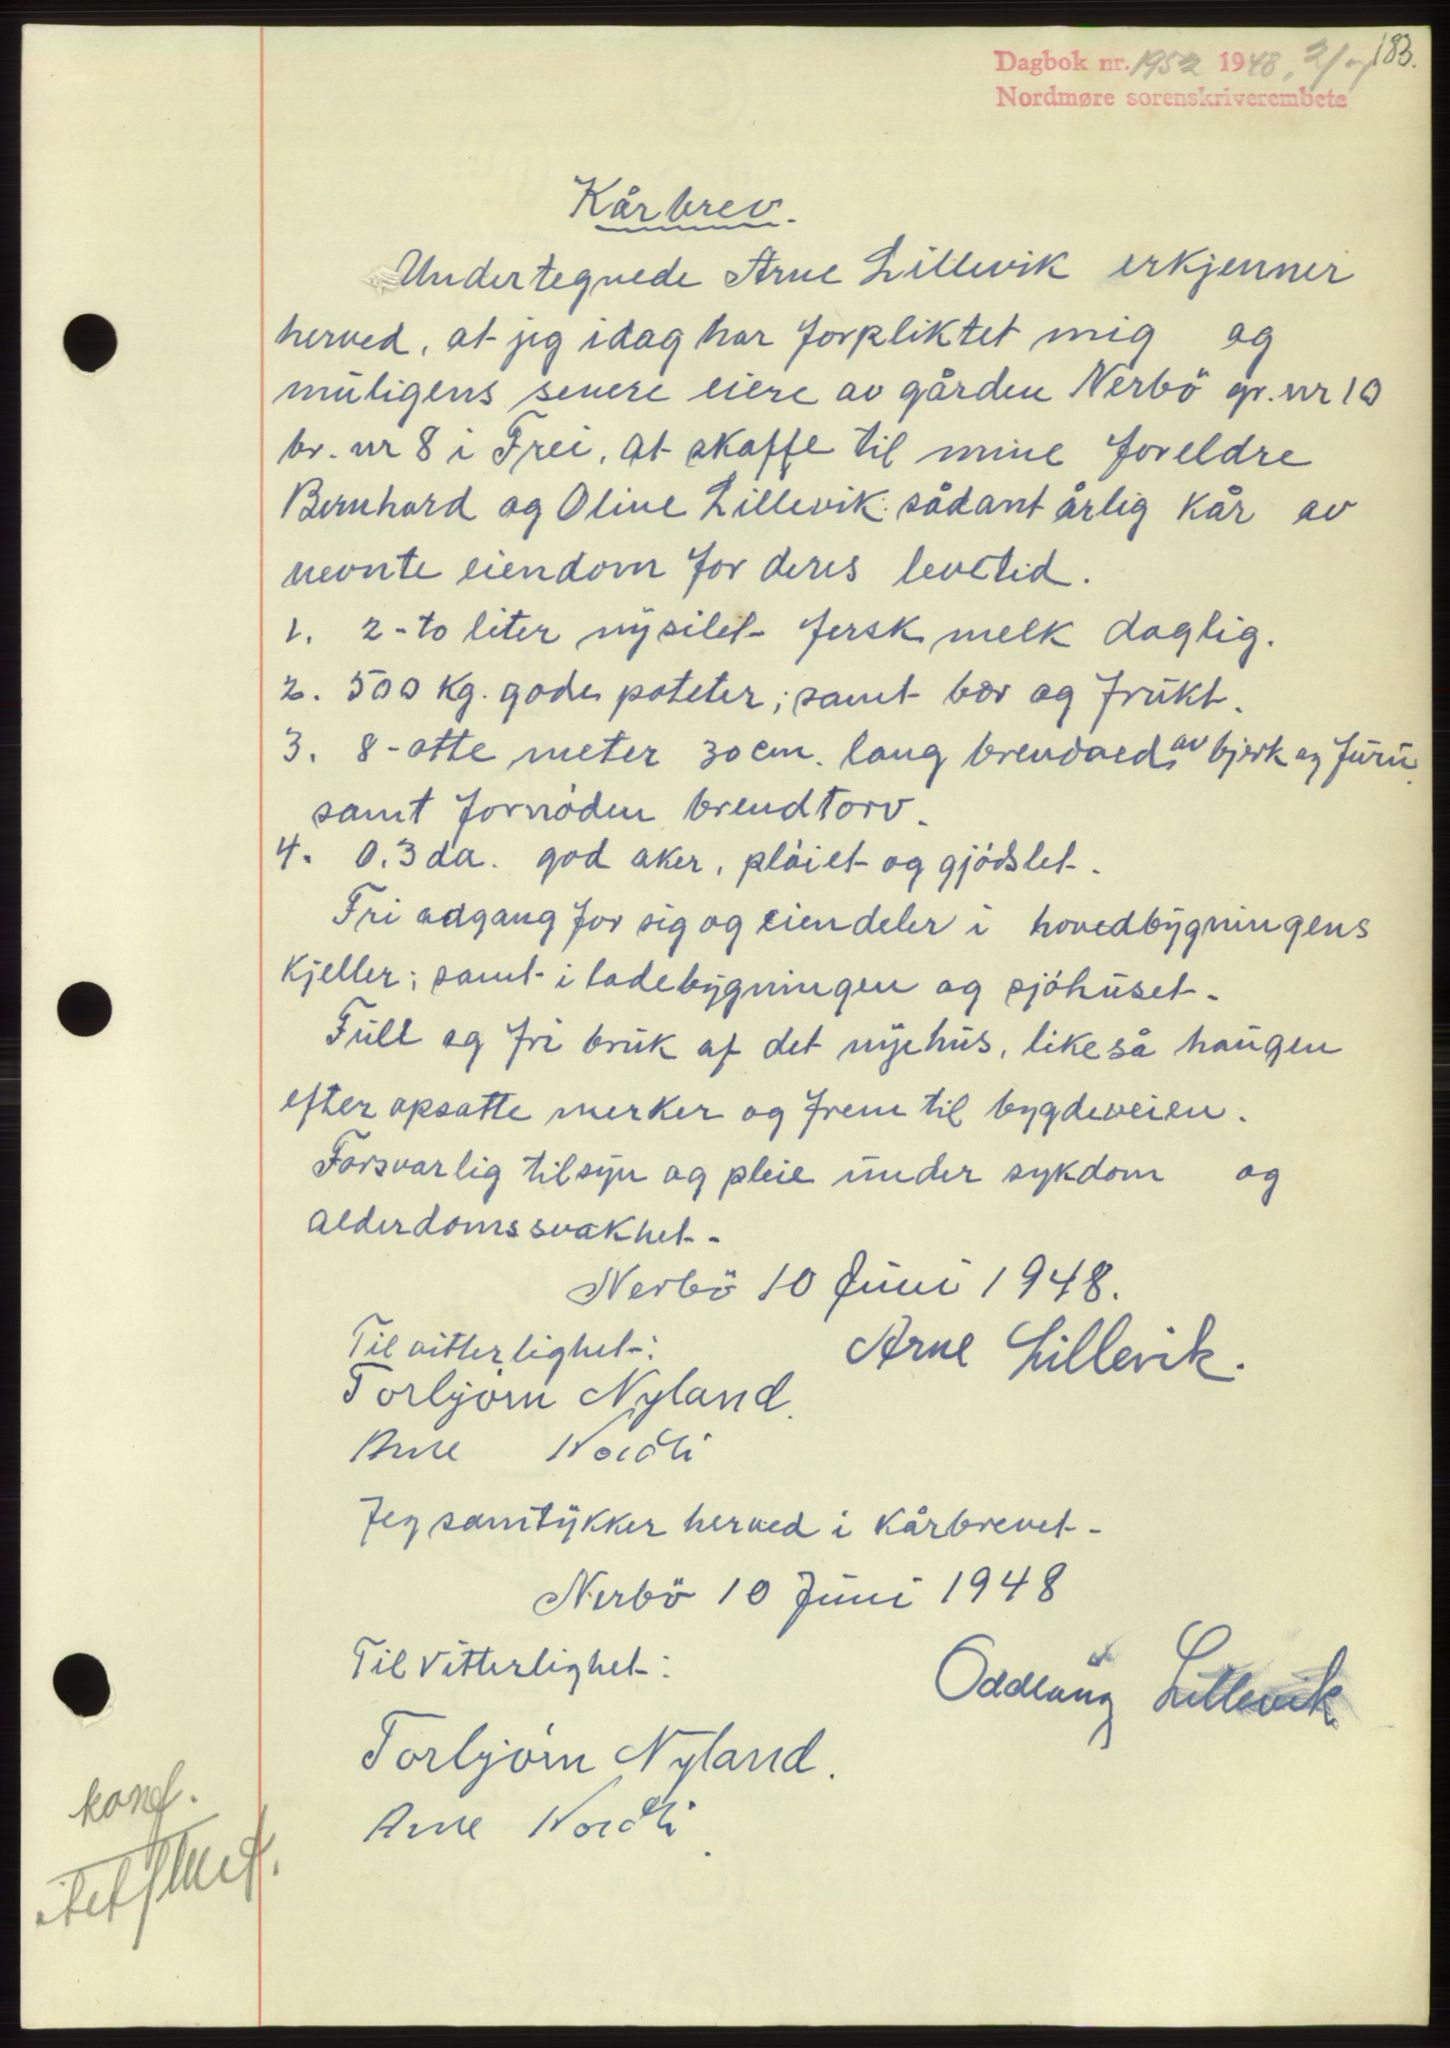 183.
Dagbok nr. 1952 1948, 2/
Nordmøre sorenskriverembete
Kårbrev.
Undertegnede Arne Lillevik erkjenner
herved, at jeg idag har forpliktet mig og
muligens senere eiere av gården Nerbö gr. nr 10
br. nr 8 i Frei, at skaffe til mine foreldre
Bernhard og Oline Lillevik sådant årlig kår av
nevnte eiendom for deres levetid.
1. 2-to liter nysilet fersk melk daglig.
2. 500 kg. gode poteter; samt bær og frukt.
3. 8-otte meter 30 cm. lang brendved av bjerk og furu
samt fornöden brendtorv.
4. 0.3 da. god aker, plöiet og gjödslet.
Fri adgang for sig og eiendeler i hovedbygningens
kjeller; samt i ladebygningen og sjöhuset.
Full og fri bruk af det nye hus, likeså haugen
efter opsatte merker og frem til bygdeveien.
Forsvarlig tilsyn og pleie under sykdom og
alderdomssvakhet.
Nerbö 10 Juni 1948.
Til vitterlighet: Arne Lillevik.
Torbjörn Nyland.
Arne Nordli
Jeg samtykker herved i kårbrevet.
Nerbö 10 Juni 1948
Til Vitterlighet:
Oddlaug Lillevik
Torbjörn Nyland.
Arne Nordli.
konf.